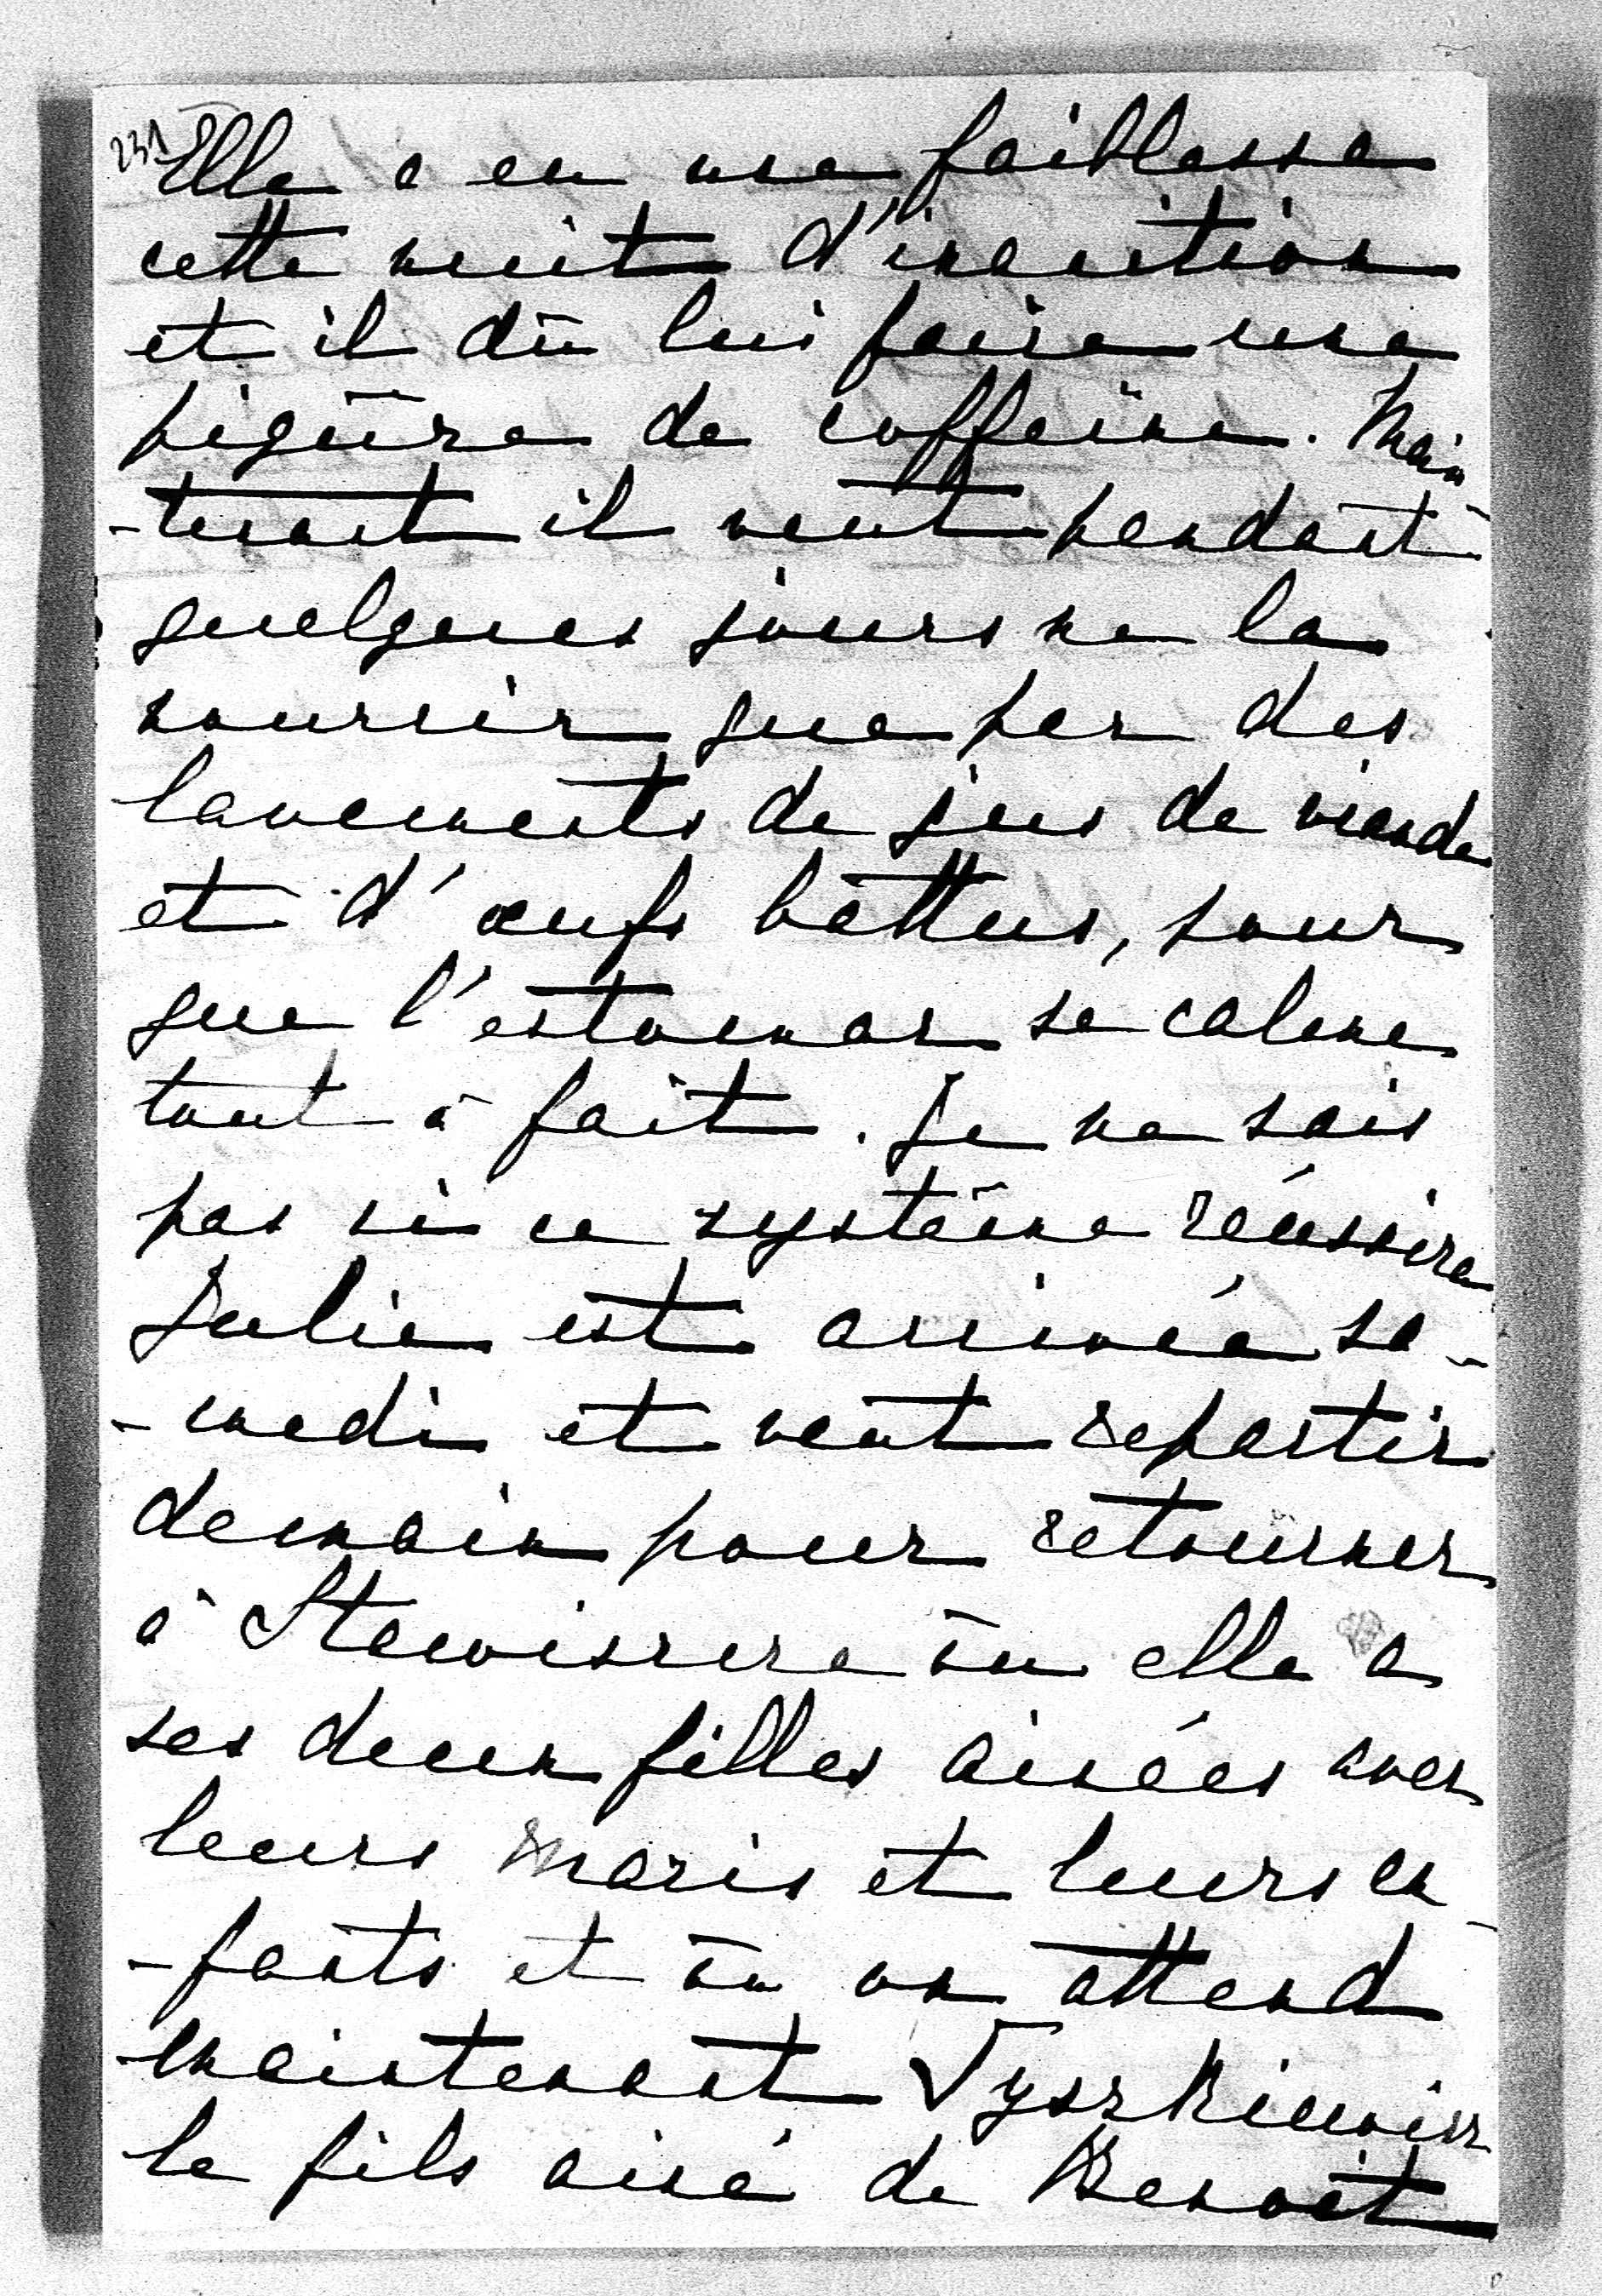 231 Elle a eu une faiblesse
cette nuit d'inanition
et il dû lui faire une
piqûre de coffeïne. Main
-tenant il veut pendant
quelques jours ne la
nourrir que par des
lavements de jus de viande
et d'œufs battus, pour
que l'estomac se calme
tout à fait. Je ne sais
pas si ce système réussira
Julie est arrivée sa-
-medi et veut repartir
demain pour retourner
à Stawiszcze où elle a
ses deux filles ainées avec
leurs maris et leurs en-
-fants et où on attend
maintenant Tyszkiewicz
le fils ainé de Benoit